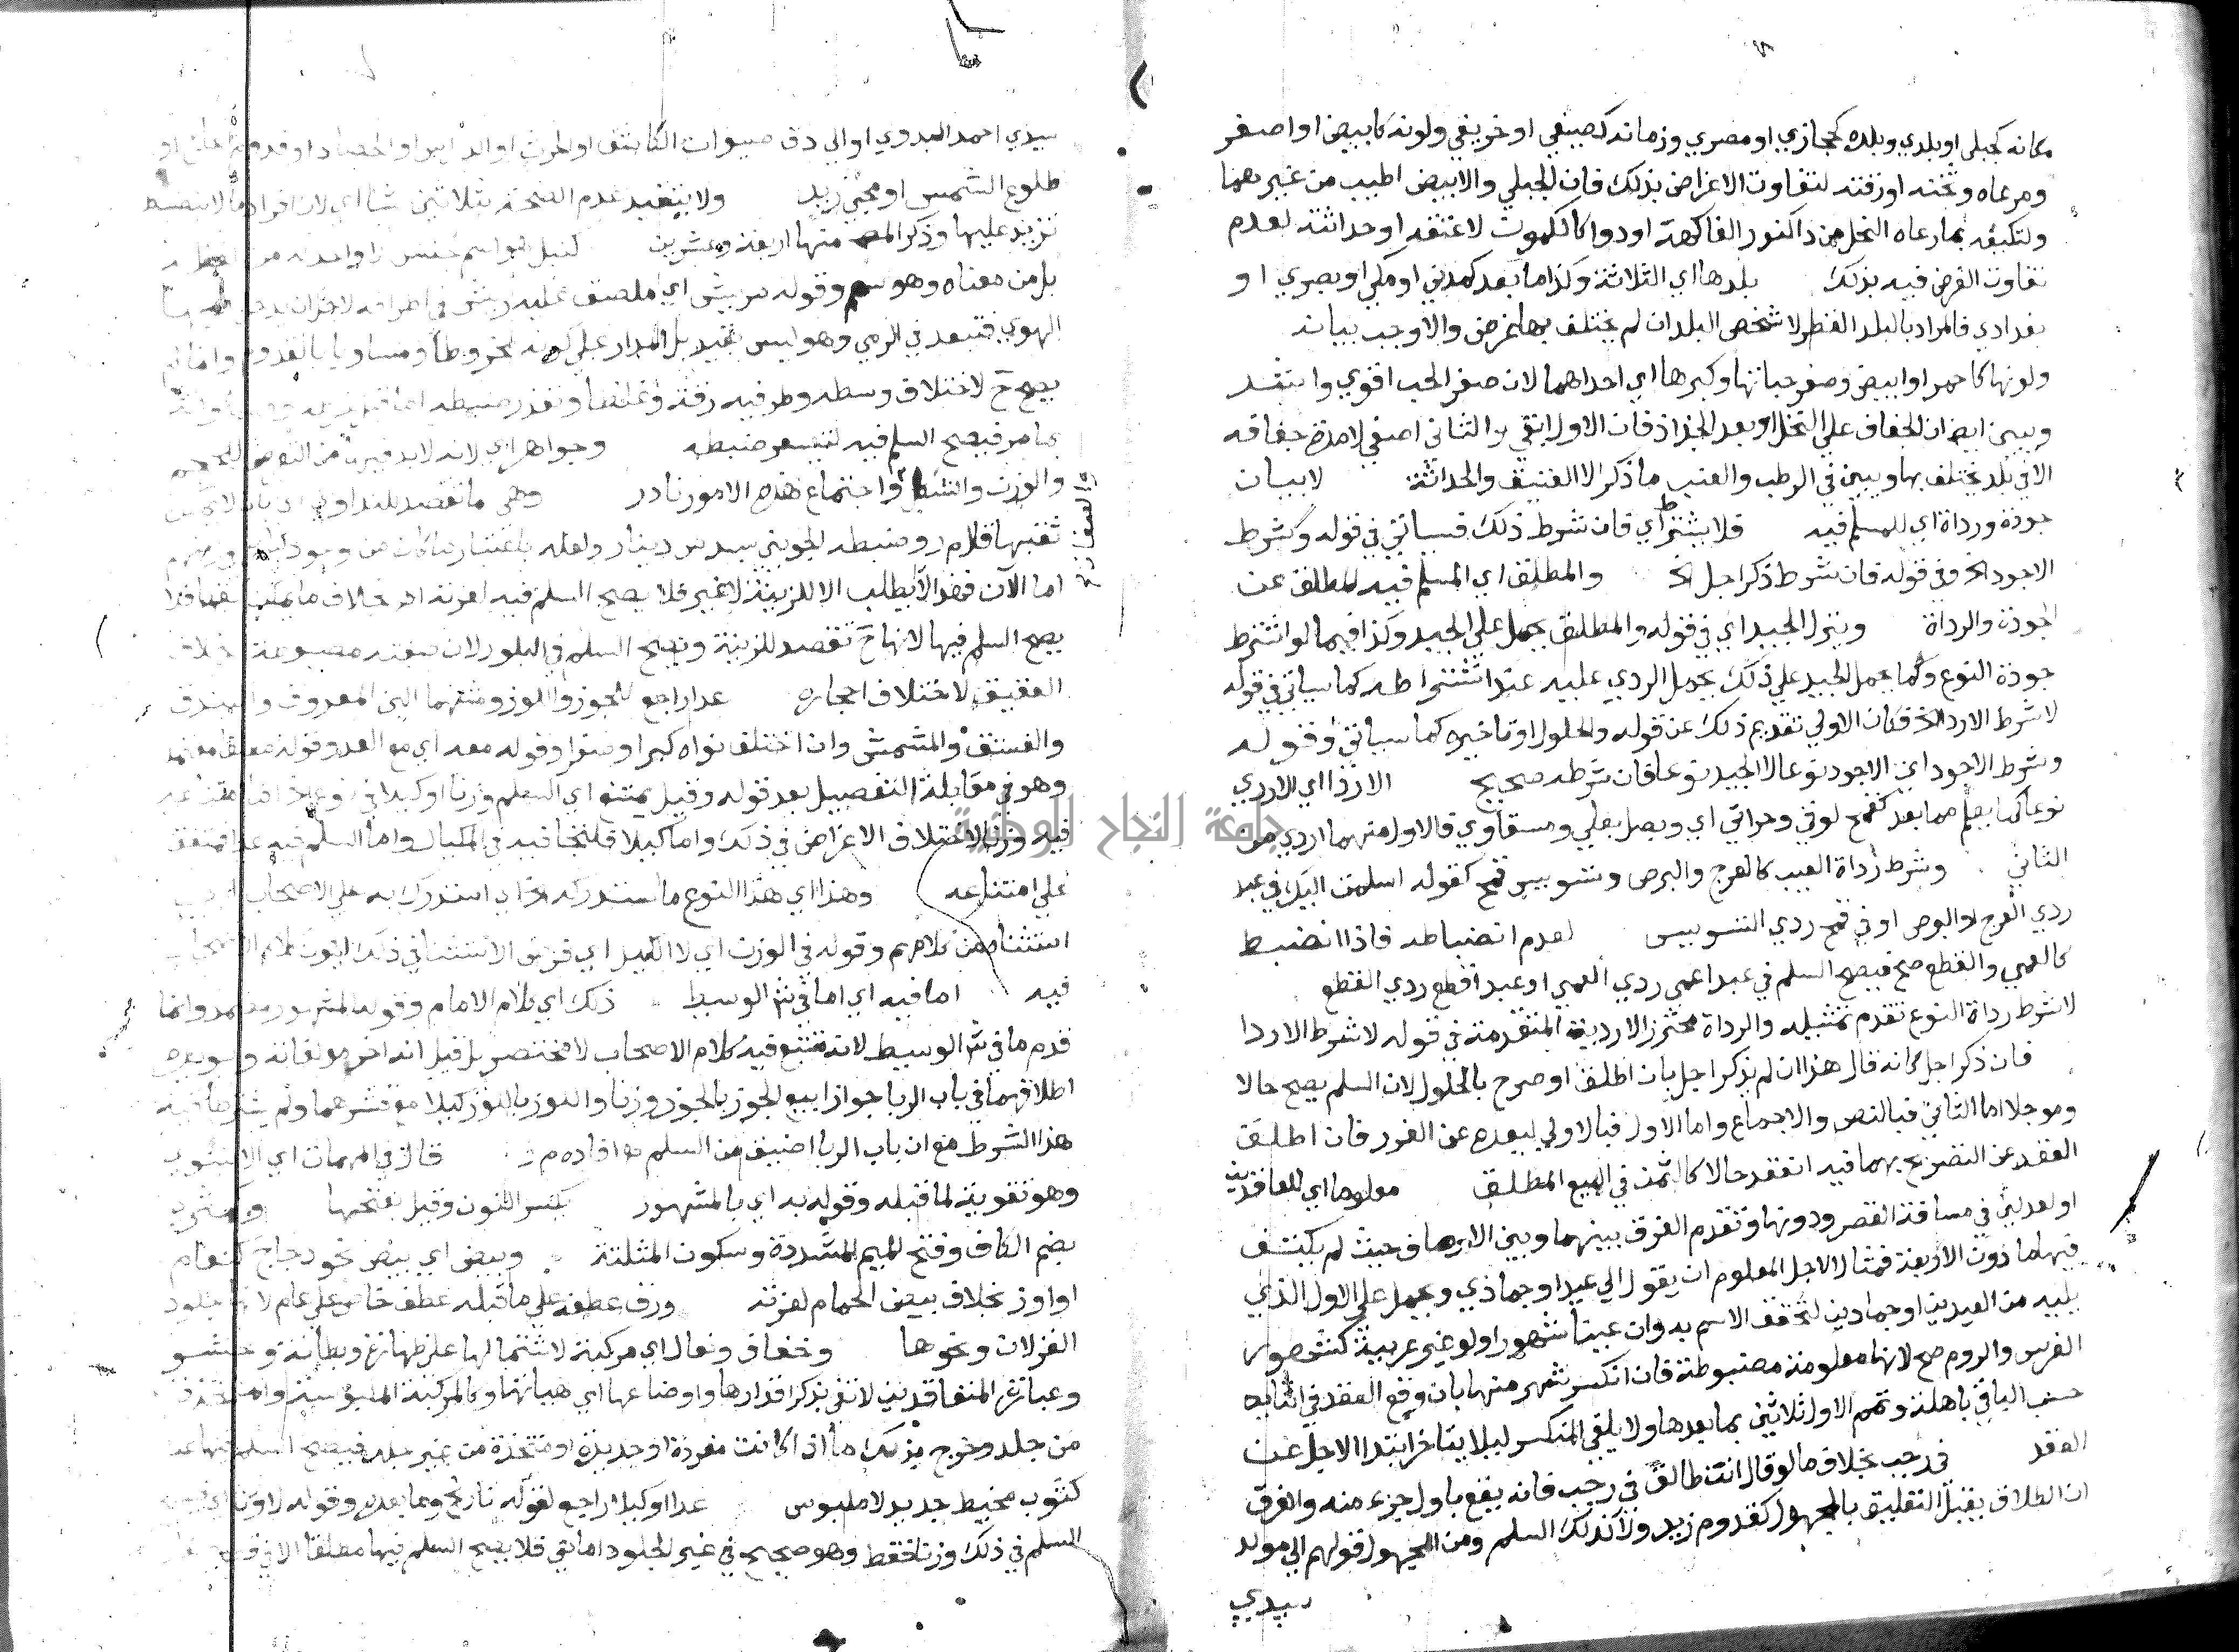 مكانه كجبلي او بلدي وبلده كحجازي او مصري وزمانه كصيفي او خريفي ولونه كابيض او اصفر
ومرعاه وثخنه او رقته لتفاوت الاغراض بذلك فان الجبلي والابيض اطيب من غيرهما
ولتكيفه بما رعاه النحل من كنور الفاكهة او دوا كالكمون لا عتقه او حداثته لعدم
تفاوت الغرض فيه بذلك بلدها اي الثلاثة وكذا ما بعد كمدني او مكي او بصري او
بغدادي فالمراد بالبلد القطر لا شخص البلد ان لم يختلف بها غرض والا وجب بيانه
ولونها كاحمر او ابيض وصغر حباتها وكبرها اي احداهما لان صغر الحب اقوي واشد
ويبين ايضا ان الجفاف علي النخل او بعد الجذاذ فان الاول ابقي والثاني اصفي لا مدة جفافه
الا في بلد يختلف بها ويبين في الرطب والعنب ما ذكر الا العتيق والحداثة لا بيان
جودة ورداة اي للمسلم فيه فلا يشترط اي فان شرط ذلك فسياتي في قوله وشرط
الاجود الخ وفي قوله فان شرط ذكر اجل الخ والمطلق اي المسلم فيه المطلق عن
الجودة والرداة وينزل الجيد اي في قوله والمطلق يحمل علي الجيد وكذا فيما لو اشترط
جودة النوع وكما يحمل الجيد علي ذلك يحمل الردي عليه عند اشتراطه كما سياتي في قوله
لا شرط الاردا الخ فكان الاولي تقديم ذلك عن قوله والحلول او تاخيره كما سياتي وقوله
وشرط الاجود اي الاجود نوعا لا الجيد نوعا فان شرطه صحيح الاردا اي الاردي
نوعا كما يعلم مما بعد كقمح لوقي وحراتي اي وبصل بعلي ومسقاوي فالاول منهما اردي من
الثاني وشرط رداة العيب كالعرج والبرص وتسويس قمح كقوله اسلمت اليك في عبد
ردي العرج او البرص او في قمح ردي التسويس لعدم انضباطه فاذا انضبط
كالعمي والقطع صح فيصح السلم في عبد اعمي ردي العمي او عبد اقطع ردي القطع
لا شرط رداة النوع تقدم تمثيله والرداة محترز الاردية المتقدمة في قوله لا شرط الاردا
فان ذكر اجل كانه قال هذا ان لم يذكر اجل بان اطلق او صرح بالحلول لان السلم يصح حالا
وموجلا اما الثاني فبالنص والاجماع واما الاول فبالاولي لبعده عن الغرر فان اطلق
العقد عن التصريح بهما فيه انعقد حالا كالثمن في البيع المطلق معلوما اي للعاقدين
او لعدلين في مسافة القصر ودونها وتقدم الفرق بينهما وبين الاوصاف حيث لم يكتف
فيها بما دون الاربعة فمثال الاجل المعلوم ان يقول الي عيد او جمادي ويحمل علي الاول الذي
يليه من العيدين او جمادين لتحقق الاسم به وان عينا شهورا ولو غير عربية كشهور
الفرس والروم صح لانها معلومة مضبوطة فان انكسر شهر منها بان وقع العقد في اثنايه
حسب الباقي باهلة وتمم الاول ثلاثين بما بعدها ولا يلغي المنكسر ليلا يتاخر ابتدا الاجل عن
العقد في رجب بخلاف ما لو قال انت طالق في رجب فانه يقع باول جزء منه والفرق
ان الطلاق يقبل التعليق بالمجهول كقدوم زيد ولا كذلك السلم ومن المجهول قولهم الي مولد
سيدي
سيدي احمد البدوي او الي دق الكاشف او الحرث او الدراس او الحصاد او قدوم الحاج او
طلوع الشمس او مجي زيد ولا يتقيد عدم الصحة بثلاثين شيا اي لان افراد ما لا ينضبط
تزيد عليها وذكر المص منها اربعة وعشرين كنبل هو اسم جنس لا واحد له من لفظه
بل من معناه وهو سهم وقوله مريش اي ملصق عليه ريش في اطرافه
الهوي فتبعد في الرمي وهو ليس بقيد بل المدار علي كونه مخروطا ومساويا
يصح ح لاختلاف وسطه وطرفيه رقة وغلظا وتعذر ضبطه اما قبل
بما مر فيصح السلم فيه لتيسر ضبطه وجواهر اي لانه لا بد فيها من التعرض للحجم
والوزن والشكل واجتماع هذه الامور نادر وهي ما تقصد للتداوي
ثقبها قلام ر وضبطه الجويني بسدس دينار ولعله باعتبار ما كان من
اما الآن فهو الا يطلب الا للزينة لا غير فلا يصح السلم فيه لعزته اه بخلاف
يصح السلم فيها لانها ح تقصد للزينة ويصح السلم في البلور لان صفته مضبوطة بخلاف
العقيق لاختلاف احجاره عدا راجع للجوز واللوز ومثلهما البن المعروف والبندق
والفستق والمشمش وان اختلف نواه كبرا وصغرا وقوله معه اي مع العد وقوله
وهو في مقابلة التفصيل بعد قوله وقيل يمتنع اي السلم وزنا او كيلا في نوع
فيه وزنا لاختلاف الاغراض في ذلك واما كيلا فلتجافيه في المكيال واما السلم فيه عدا فمتفق
علي امتناعه وهذا اي هذا النوع ما استدركه اي استدرك به علي الاصحاب
استثناه من كلامهم وقوله في الوزن اي لا الكيل اي فرض الاستثنا في ذلك
فيه اما فيه اي اما في شر الوسيط ذلك اي كلام الامام وقوله المشهور معتمد وانما
قدم ما في شر الوسيط لانه متتبع فيه كلام الاصحاب لا مختصر بل قيل انه اخر مولفاته
اطلاقهما في باب الربا جواز بيع الجوز بالجوز وزنا واللوز باللوز كيلا مع قشرهما ولم يشترط فيه
هذا الشرط مع ان باب الربا اضيق من السلم افاده م ر قال في المهمات اي الاسنوي
وهو تقوية لما قبله وقوله به اي بالمشهور بكسر اللون وقيل بفتحها وكمثري
بضم الكاف وفتح الميم المشددة وسكون المثلثة وبيض اي بيض نحو دجاج كنعام
او اوز بخلاف بيض الحمام لعزته ورق عطفه علي ما قبله عطف خاص علي عام
الغزلان ونحوها وخفاف ونعال اي مركبة لاشتمالها علي ظهارة وبطانة وحشو
وعبارة المتعاقدين لا تفي بذكر اقدارها واوضاعها اي هياتها وكالمركبة الملبوسة والمتخذة
من جلد وخرج بذلك ما اذا كانت مفردة او جديدة او متخذة من غير جلد فيصح السلم فيها
كثوب مخيط جديد لا ملبوس عدا او كيلا راجع لقوله نارنج وما بعده وقوله لا وزنا
السلم في ذلك وزنا فقط وهو صحيح في غير الجلود اما في فلا يصح السلم فيها مطلقا الا في
جامعة النجاح الوطنية